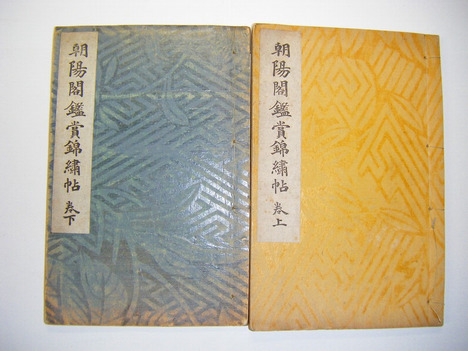 朝陽閣鑑賞錦繡帖 巻上
朝陽閣鑑賞錦繡帖 巻下